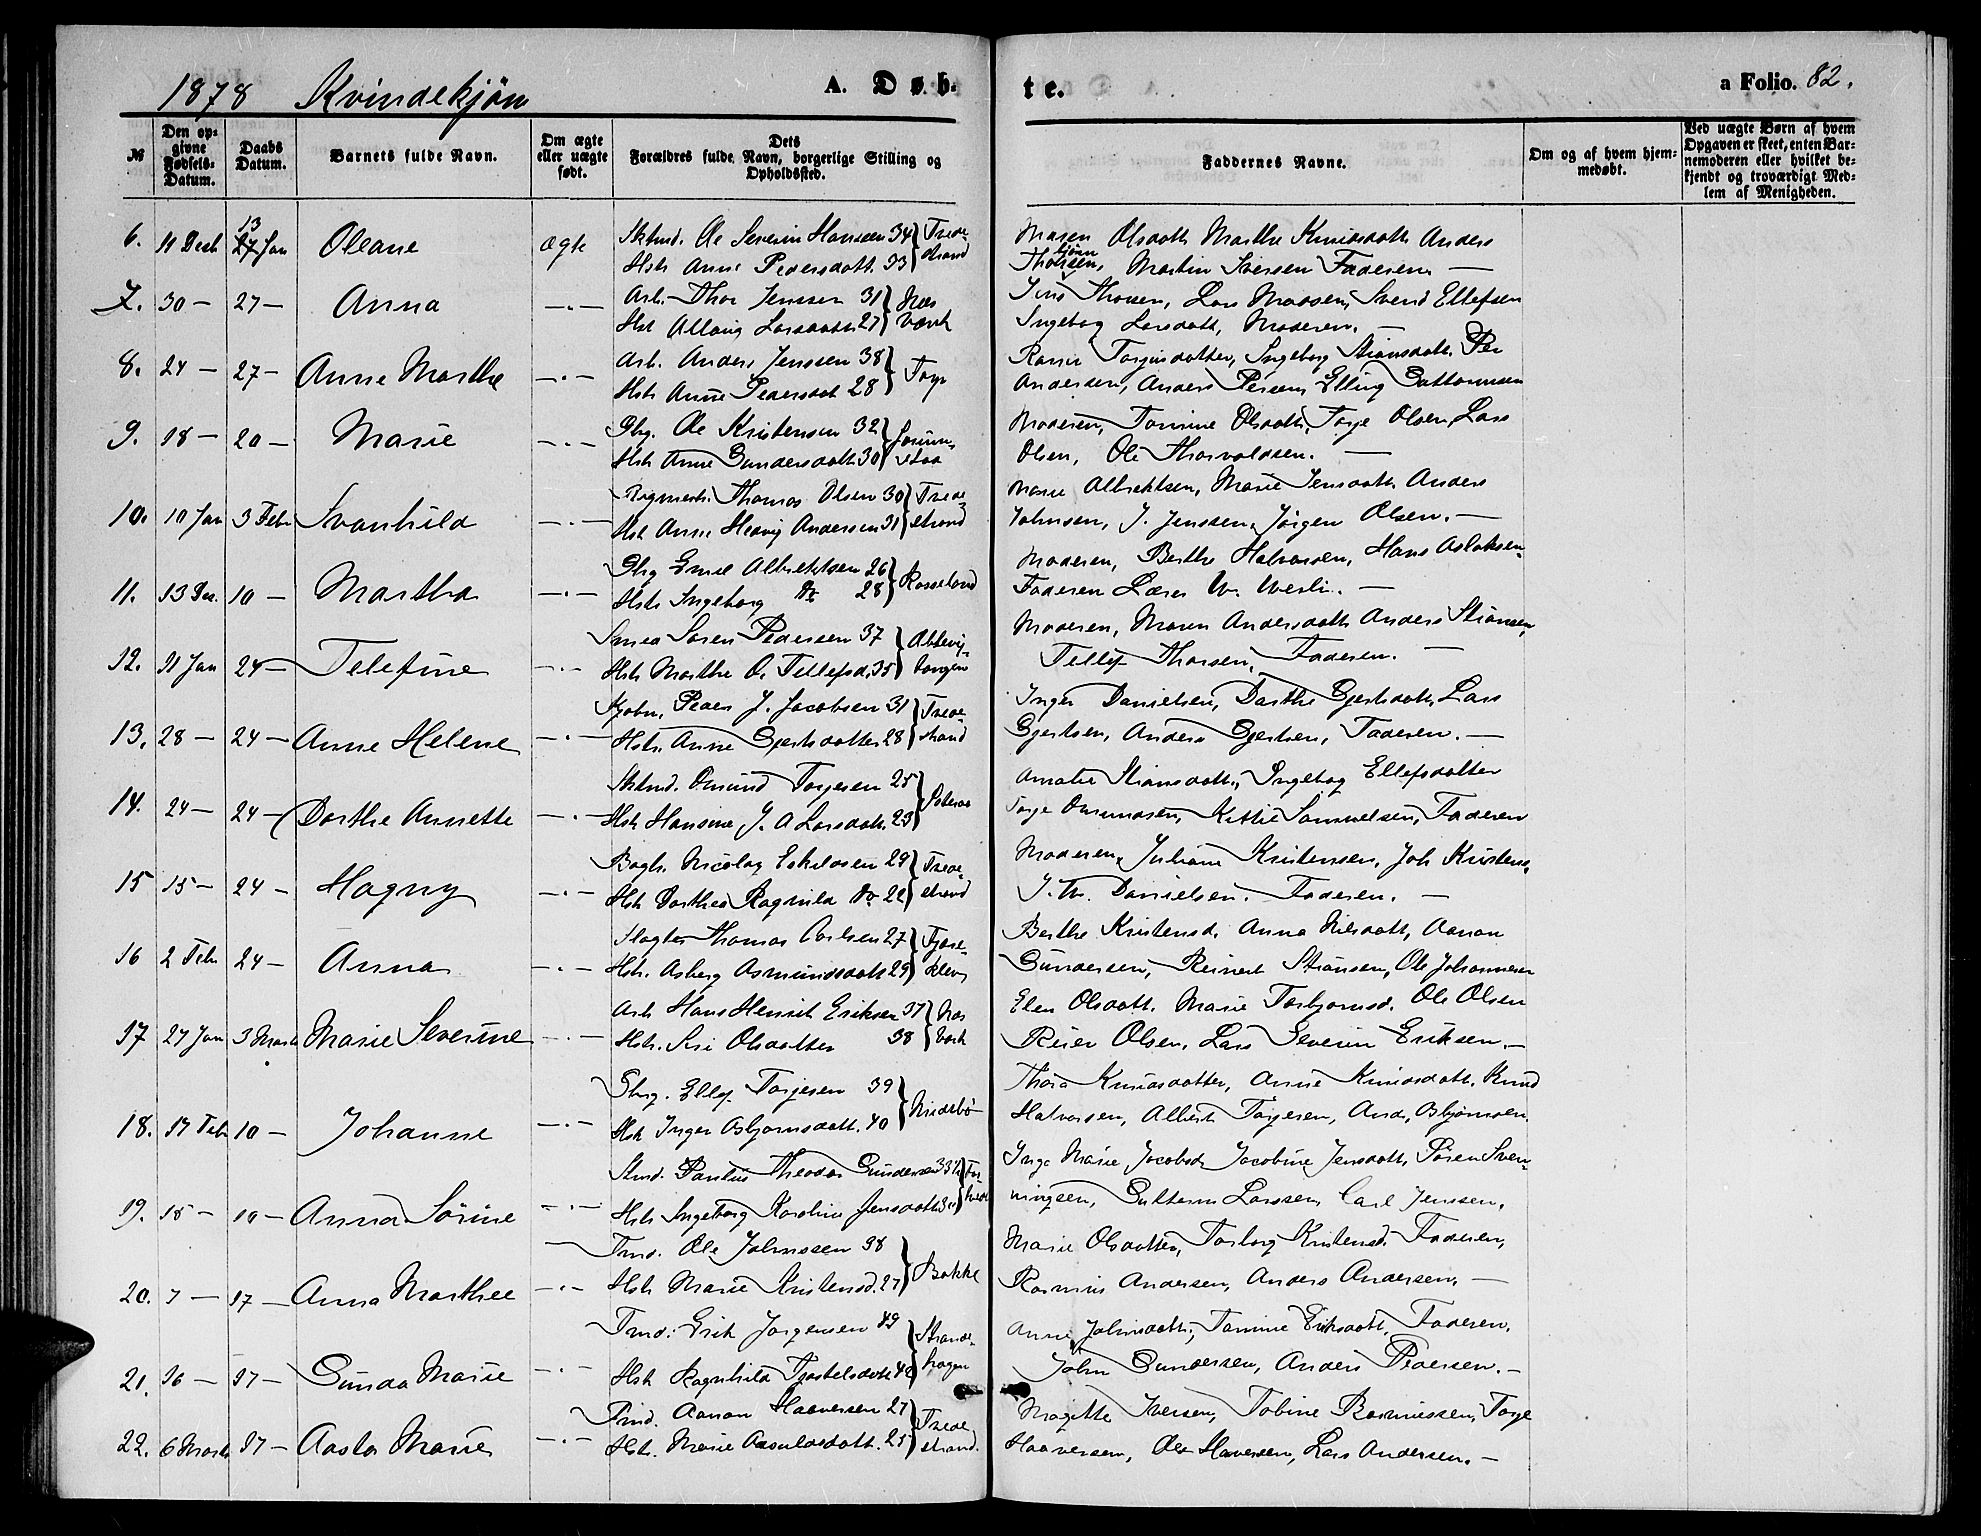 1878 Kvindekjøn A. Døb-
te. a Folio. 82.
№ Den opgivne Fødsels-Datum. Daabs Datum. Barnets fulde Navn. Om ægte eller uægte født. Dets Forældres fulde Navn, borgerlige Stilling og Opholdssted. Faddernes Navne. Om og af hvem hjemmedøbt. Ved uægte Børn af hvem Opgaven er skeet, enten Barnemoderen eller hvilket bekjendt og troværdigt Medlem af Menigheden.
6. 11 Decb 13 Jan Oleane ægte Sktmd. Ole Severin Hansen 34 Tvede-
Hst Anne Pedersdatt. 33 strand
Maren Olsdatt. Marthe Knudsdatt. Anders
Thorsen, Martin Iversen Faderen. —
7. 30 — 27 — Anna —"— Arb. Thor Jenssen 31 Næs
Hst Larsdatt 27 Værk
Jens Thorsen, Lars Svend Ellefsen
Ingebog Larsdatt, Moderen. —
8. 24 — 27 — Anne Marthe —"— Arb. Anders Jenssen 38
Hst Anne Pedersdat 28
Torjusdatter, Ingeborg Stiansdatt. Per
Andersen, Anders Persen, Elling
9. 18 — 20 — Marie —"— Gbg. Ole Kristensen 32
Hst Anne Gundersdatt 30
Moderen, Tomine Olsdatt, Torje Olsen, Lars
Olsen, Ole Thorvaldsen. —
10. 10 Jan 3 Febr Svanhild —"— Thomas Olsen 30 Tvede-
Hst Anne Hedvig Andersen 31 strand
Marie Albrektsen, Marie Jensdatt. Anders
Johnsen, J. Jenssen, Jørgen Olsen. —
11. 13 Dec. 10 — Martha —"— Gbg Emil Albrektsen 26 Rosseland
Hst Ingeborg Do 28
Moderen, Berthe Halvorsen, Hans Aslaksen
Faderen Lærer W. —
12. 31 Jan 24 — Telefine —"— Smed Søren Pedersen 37
Hst Marthe O. Tellefsd. 35
Moderen, Maren Andersdatt Anders Stiansen,
Tellef Thorsen, Faderen. —
13. 28 — 24 — Anne Helene —"— Peder J. Jacobsen 31 Tvede-
Hst. Anne Gjertsdatter 28 strand
Inger Danielsen, Dorthe Gjertsdatt, Lars
Gjertsen, Anders Gjertsen, Faderen. —
14. 24 — 24 — Dorthe Annette —"— Sktmd. Omund Torjesen 25
Hst Hansine J. A Larsdatt. 23
Amalie Stiansdatt., Ingebog Ellefsdatter
Torje Omundsen, Kittil Samuelsen, Faderen
15 15 — 24 — Hagny —"— Nicolay Eskildsen 29 Tvede-
Hst Dorthea Ragnild Do 22 strand
Moderen, Juliane Kristensen, Joh Kristens.
J. W. Danielsen. Faderen. —
16 2 Febr 24 — Anna —"— Slagter Thomas Carlsen 27
Hst. Asberg Asmundsdatt 29
Berthe Kristensd. Anna Nilsdatt, Aanon
Gundersen, Reinert Stiansen, Ole Johannesen
17 27 Jan 3 Marts Marie Severine —"— Arb Hans Henrik Eriksen 37 Næs
Hst. Siri Olsdatter 38 Værk
Elen Olsdatt. Marie Torbjornsd. Ole Olsen
Reier Olsen. Lars Severin Eriksen. —
18. 17 Feb 10 — Johanne —"— Gbg. Ellef Torjesen 39
Hst Inger Asbjornsdatt. 40
Thora Knudsdatter, Anne Knudsdatt. Knud
Halvorsen, Albert Torjesen, And. Asbjørnsen.
19. 15 — 10 — Anna Sørine —"— Paulus Theodor Gundersen
Hst Ingeborg Karoline Jensdatt
Inge Marie Jacobsd Jacobine Jensdatt, Søren Sven-
ningsen, Guttorm Larssen, Carl Jenssen.
20. 7 — 17 — Anna Marthee —"— Fmd. Ole Johnssen 38 Bakke
Hst Marie Kristensd. 27
Marie Olsdatter, Torborg Kristensd. Faderen,
Rasmus Andersen, Anders Andersen, —
21. 16 — 17 — Gunda Marie —"— Fmd. Erik Jørgensen 49
Hst Ragnhild
Anne Johnsdatt., Tomine Eriksdatt, Faderen.
John Gundersen, Anders Pedersen. —
22. 6 Marts 17 — Aasta Marie —"— Fmd. Aanon Haaversen 27 Tvede
Hst. Marie 25 strand.
Magette Iversen, Tobine Rasmussen, Torje
Haaversen, Ole Haversen, Lars Andersen. —